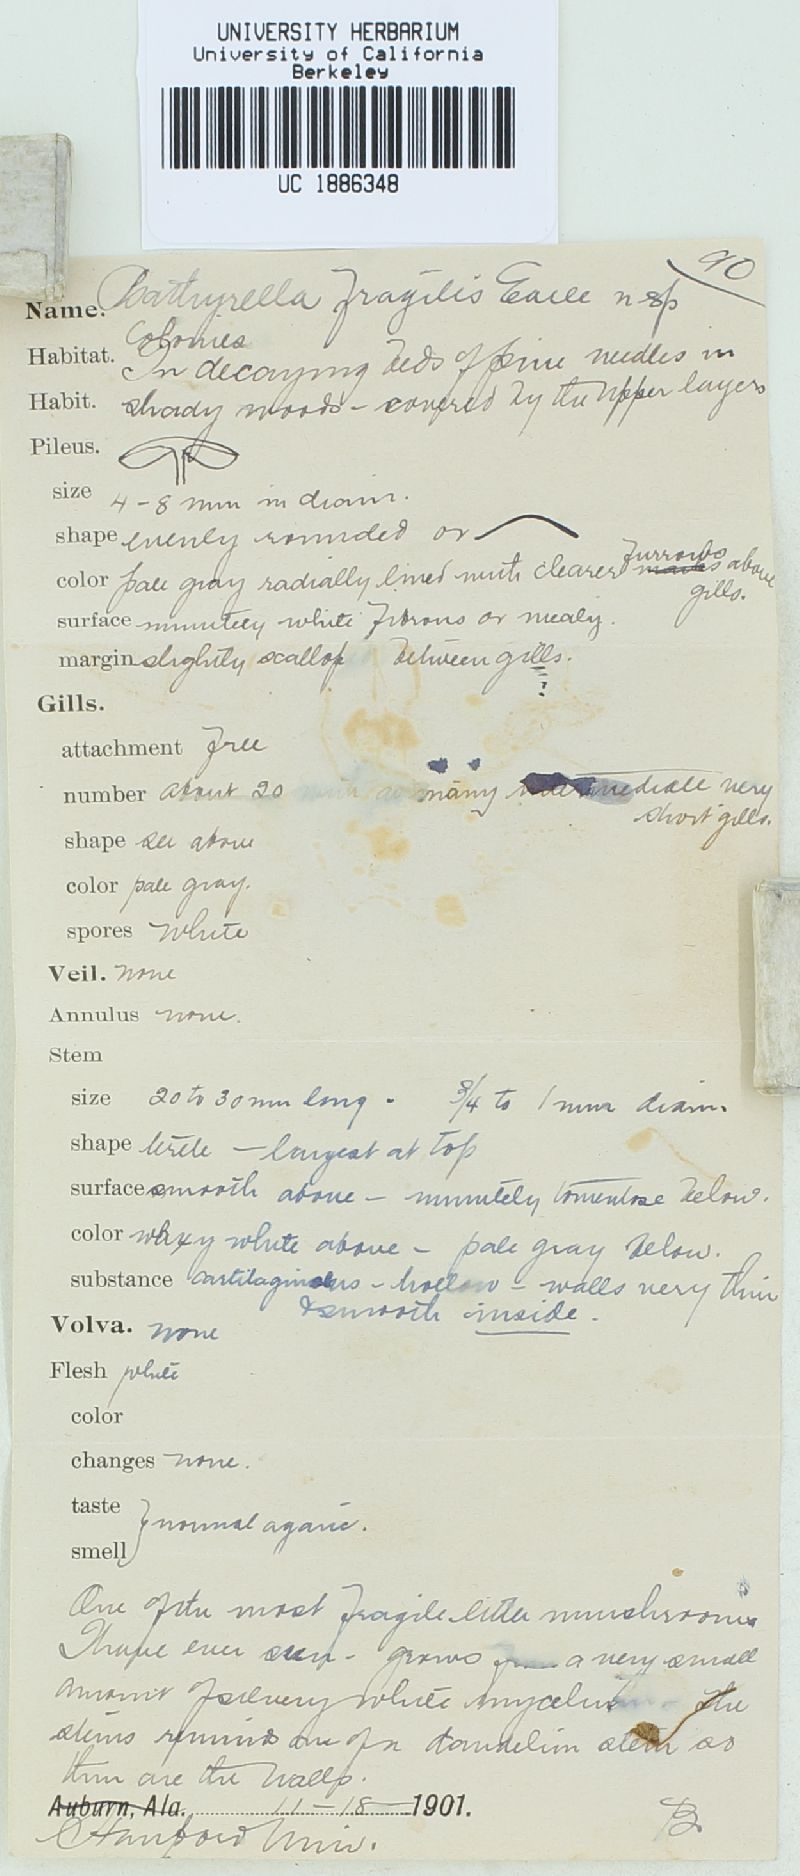 UNIVERSITY HERBARIUM
University of California
Berkeley
UC 1886348
90
Name. Psathyrella fragilis Earle n sp
Colonies
Habitat. In decaying beds of pine needles in
Habit. shady woods - covered by the upper layers
Pileus.
size 4 - 8 mm in diam.
shape evenly rounded or
furrows
color pale gray radially lined with clearer marks above
gills.
surface minutely white fibrous or mealy.
margin slightly scallop between gills.
?
Gills.
attachment free
number about 20 with as many intermediate very
short gills.
shape see above
color pale gray.
spores white
Veil. none
Annulus none.
Stem
size 20 to 30 mm long - 3/4 to 1 mm diam.
shape terete - largest at top
surface smooth above - minutely tomentose below.
color waxy white above - pale gray below.
substance cartilaginous - hollow - walls very thin
& smooth inside.
Volva. none
Flesh white
color
changes none.
taste
normal agaric.
smell
One of the most fragile little mushrooms
I have ever seen - grows from a very small
amount of silvery white mycelium - The
stems remind one of a dandelion stem so
thin are the walls.
Auburn, Ala. 11-18-1901.
Stanford Univ.
B